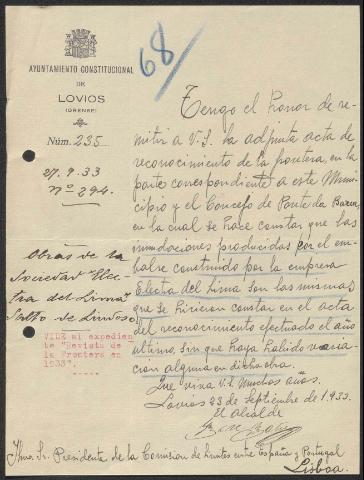 AYUNTAMIENTO CONSTITUCIONAL
DE
LOVIOS
(ORENSE)
Núm. 235
27.9.33
Nº 294.
68
Tengo el honor de re-
mitir a V.S. la adjunta acta de
reconocimiento de la frontera, en la
parte correspondiente a este Muni-
cipio y el Concejo de Ponte da Barca,
en la cual se hace constar que las
inundaciones producidas por el em-
balse construido por la empresa
Electra del Lima son las mismas
que se hicieron constar en el acta
del reconocimiento efectuado el año
último, sin que haya habido varia-
cion alguna en dicha obra.
Que viva V.S. muchos años.
Lovios 23 de Septiembre de 1933.
El Alcalde
Obras de la
Sociedad "Elec-
tra del Lima"
Salto de Lindoso
VIDE mi expedien
te "Revista de
la Frontera en
1933".
Ilmo. Sr. Presidente de la Comision de Limites entre España y Portugal
Lisboa.